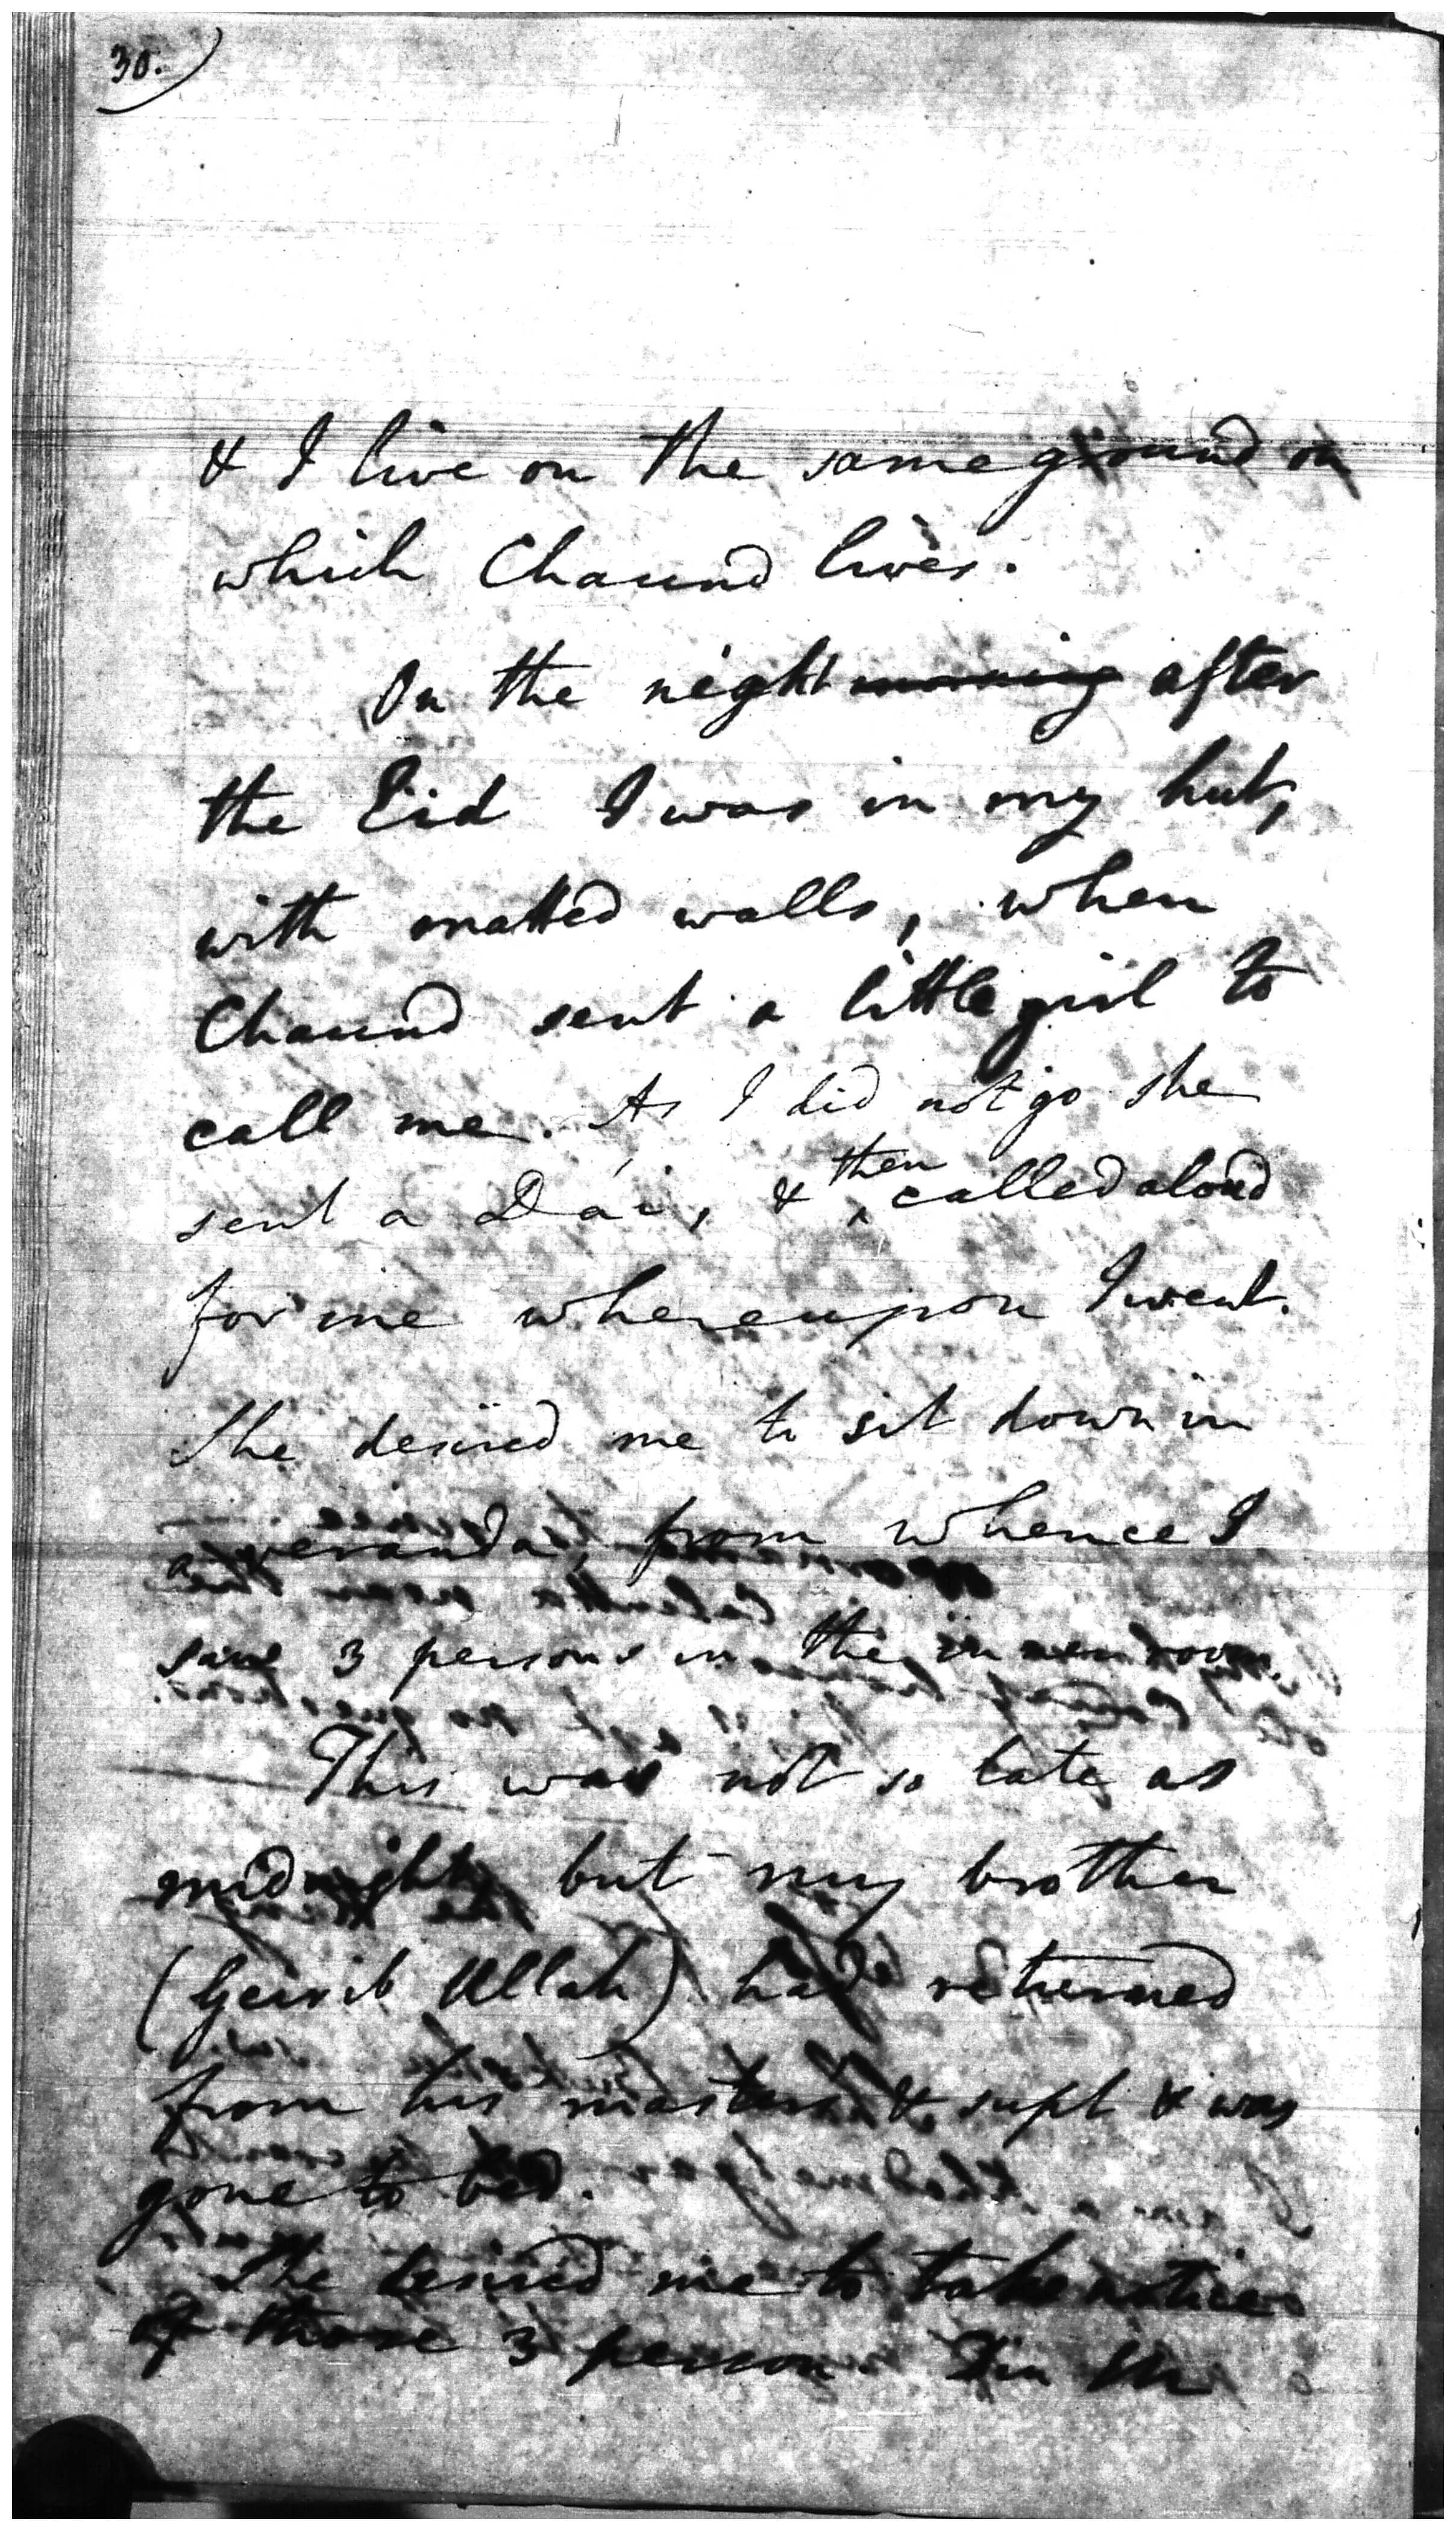 30.)
& I live on the same ground on
which Chaund lives.
On the night morning after
the Eid I was in my hut,
with matted walls, when
Chaund sent a little girl to
call me. As I did not go she
sent a Dái, & then called aloud
for me whereupon I went.
She desired me to sit down in
a veranda, from whence I
saw 3 persons in the inner room.
This was not so late as
midnight, but my brother
(Gurib Ullah) had returned
from his masters & supt & was
gone to bed.
She desired me to take notice
of those 3 person.